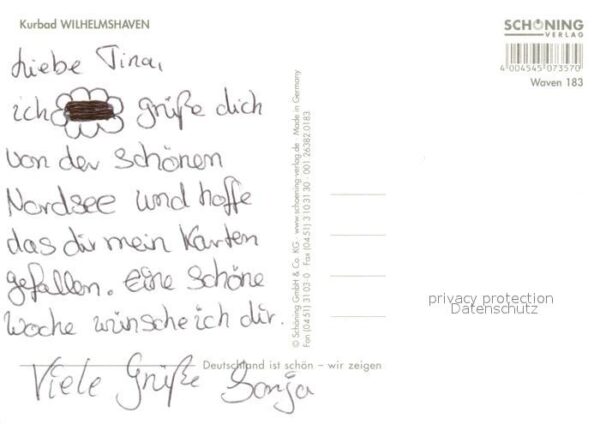 Kurbad WILHELMSHAVEN
Liebe Tina,
ich grüße dich
von der schönen
Nordsee und hoffe
das dir mein Karten
gefallen. Eine schöne
Woche wünsche ich dir.
Viele Grüße Sonja
Deutschland ist schön – wir zeigen
© Schöning GmbH & Co. KG · www.schoening-verlag.de · Made in Germany
Fon (04 51) 31 03 0 · Fax (04 51) 3 10 31 30 · 001 26382.0183
SCHÖNING
VERLAG
4 004545 073570
Waven 183
privacy protection
Datenschutz